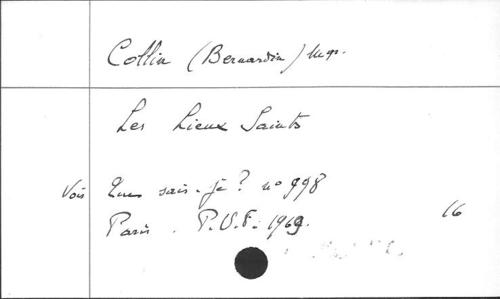 Collin (Bernardin) Mgr.
Les Lieux Saints
Voir Que sais-je? no 998
Paris. P.U.F. 1969.
16